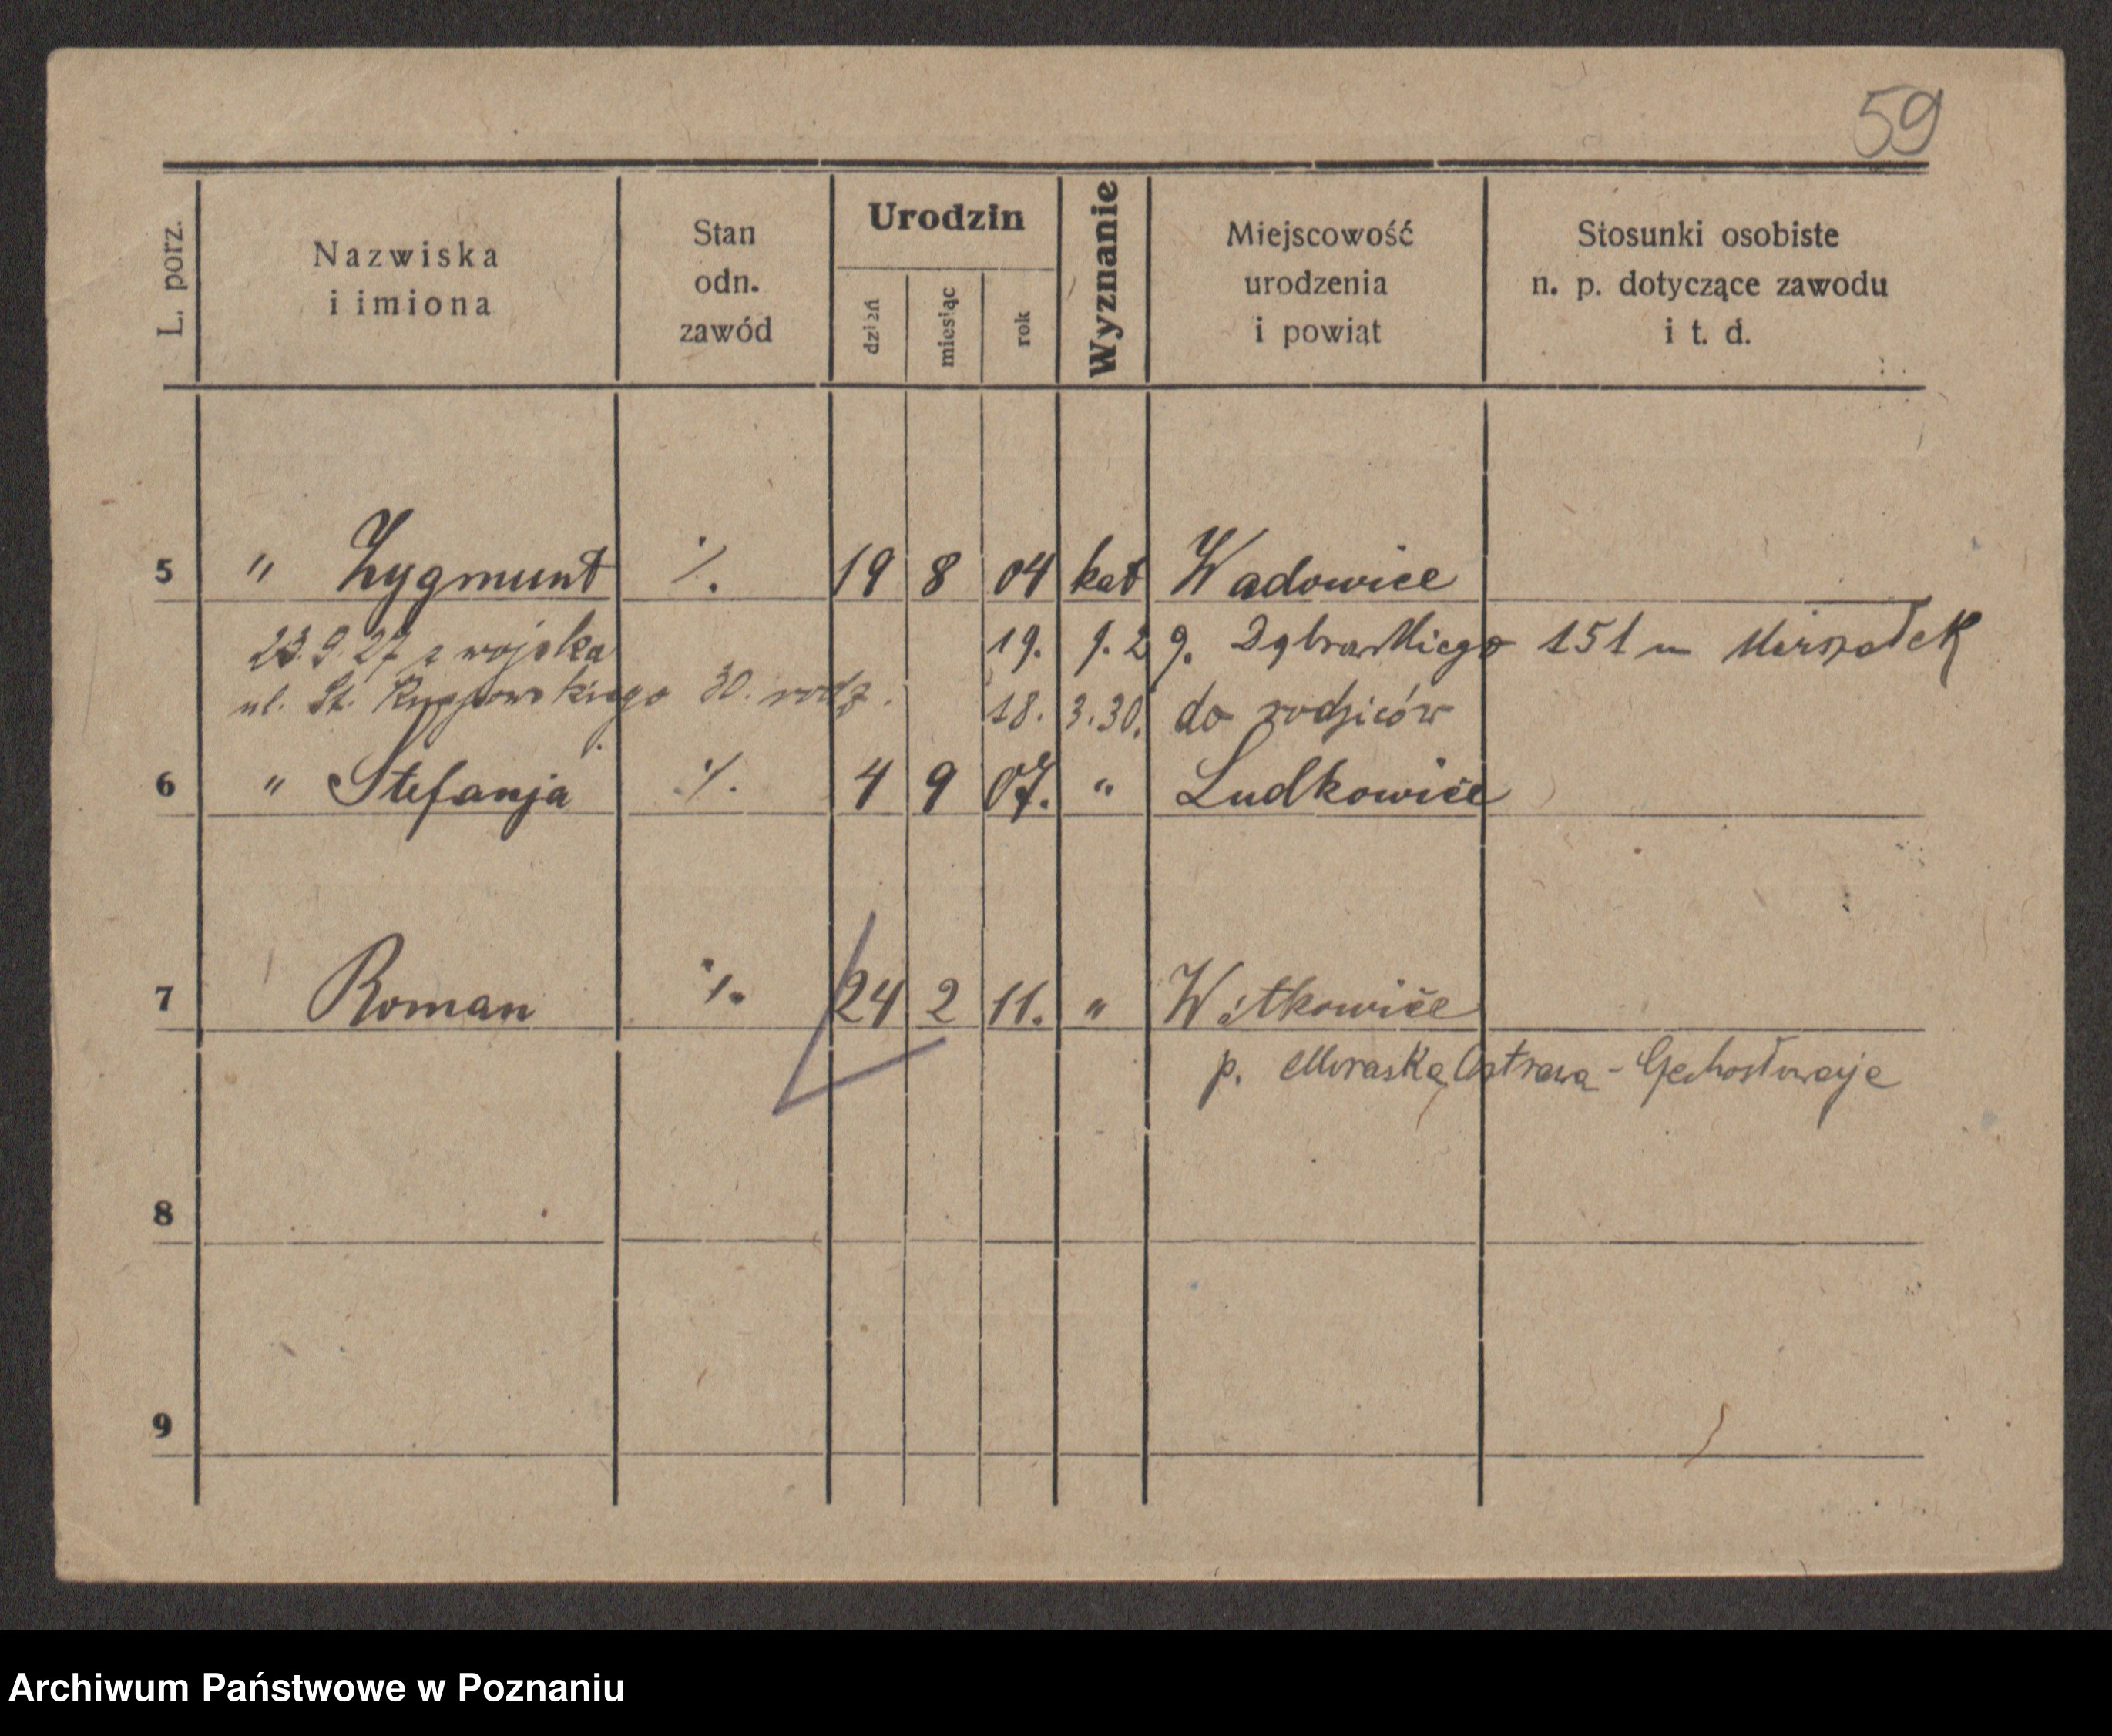 59
L. porz.
Nazwiska
i imiona
Stan
odn.
zawód
Urodzin
dzień
miesiąc
rok
Wyznanie
Miejscowość
urodzenia
i powiat
Stosunki osobiste
n. p. dotyczące zawodu
i t. d.
5 " Zygmunt ·/. 19 8 04 kat Wadowice
23.9.27 z wojska 19. 9. 29. Dąbrowskiego 151 m Marszałek
ul. St. 30. rodz. 18. 3. 30. do rodziców
6 " Stefanja ·/. 4 9 07. " Ludkowice
7 Roman ·/. 24 2 11. " Witkowice
p. Ostrawa -
8
9
Archiwum Państwowe w Poznaniu